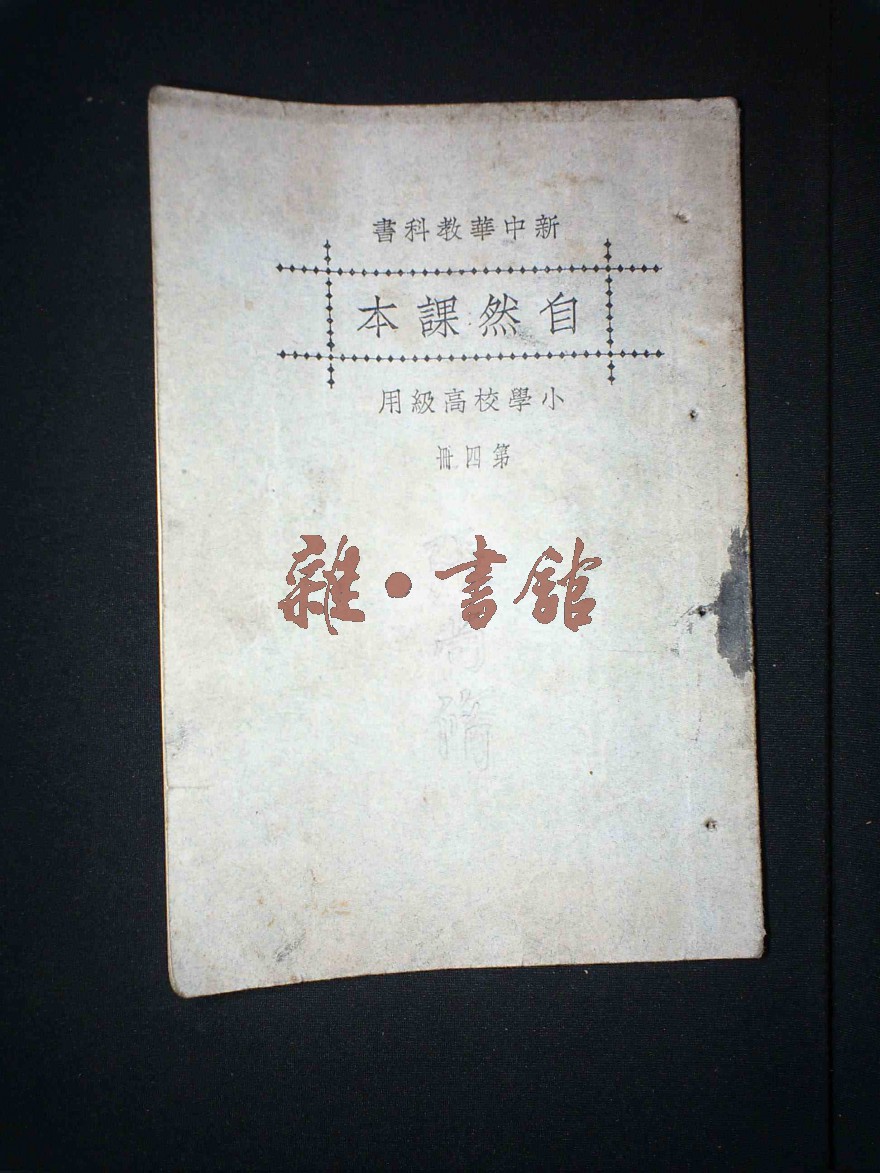 新中華教科書
自然課本
小學校高級用
第四冊
雜•書館